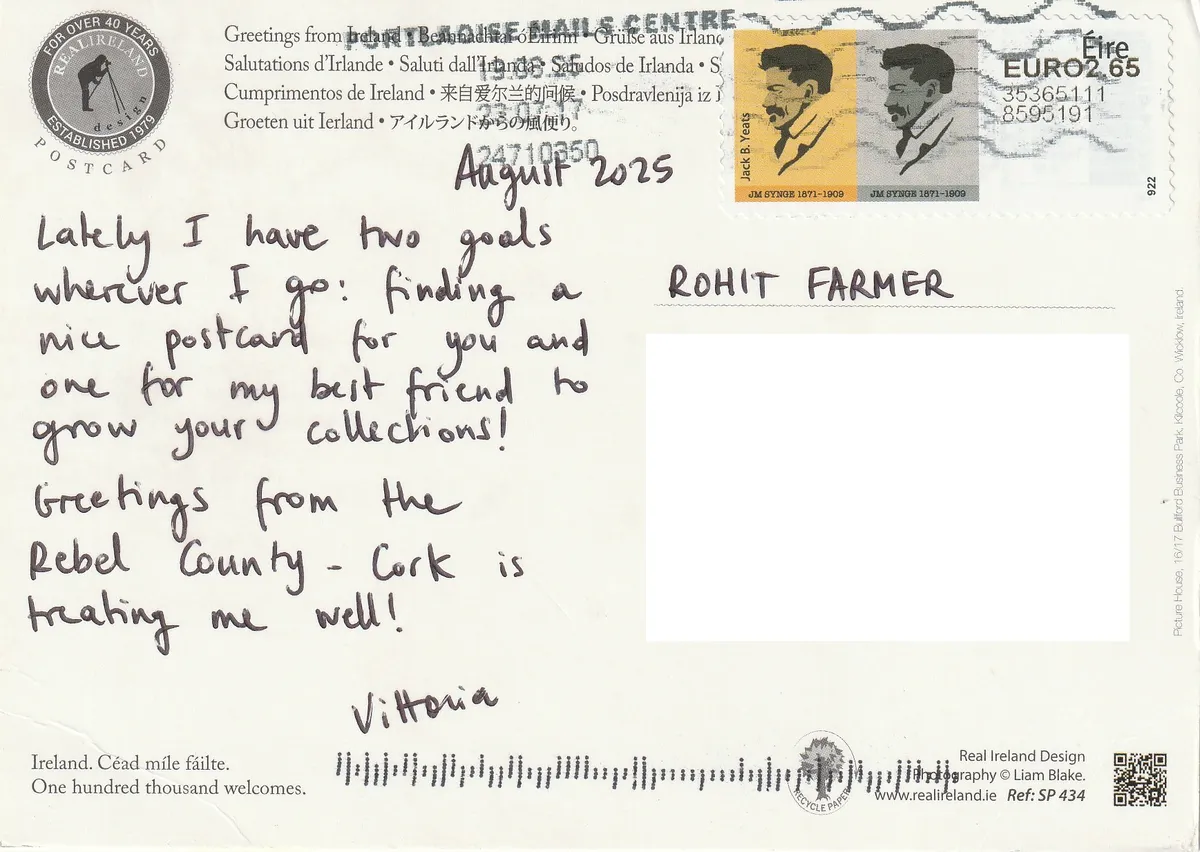 FOR OVER 40 YEARS
REALIRELAND
design
ESTABLISHED 1979
POSTCARD
Greetings from Ireland • Beannachtaí ó Éirinn • Grüße aus Irland
Salutations d'Irlande • Saluti dall'Irlanda • Saludos de Irlanda • S
Cumprimentos de Ireland • 来自爱尔兰的问候 • Posdravlenija iz i
Groeten uit Ierland • アイルランドからの風便り。
PORTLAOISE MAILS CENTRE
23
24710350
Jack B. Yeats
JM SYNGE 1871-1909
JM SYNGE 1871-1909
Éire
EURO2.65
35365111
8595191
922
August 2025
Lately I have two goals
wherever I go: finding a
nice postcard for you and
one for my best friend to
grow your collections!
Greetings from the
Rebel County - Cork is
treating me well!
Vittoria
ROHIT FARMER
Picture House, 16/17 Bulford Business Park, Kilcoole, Co. Wicklow, Ireland.
Ireland. Céad míle fáilte.
One hundred thousand welcomes.
RECYCLE PAPER
Real Ireland Design
Photography © Liam Blake.
www.realireland.ie Ref: SP 434